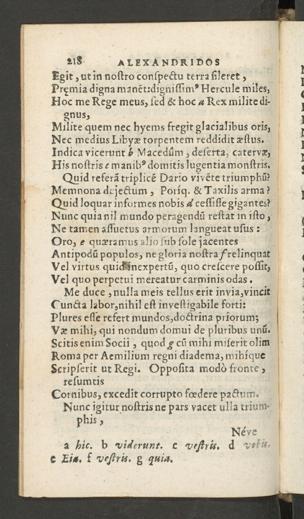 218 ALEXANDRIDOS
Egit, ut in nostro conspectu terra sileret,
Pręmia digna manēt: dignissimꝰ Hercule miles,
Hoc me Rege meus, sed & hoc a Rex milite di-
gnus,
Milite quem nec hyems fregit glacialibus oris,
Nec medius Libyæ torpentem reddidit æstus.
Indica vicerunt b Macedûm, deserta, catervæ,
His nostris c manibꝰ domitis lugentia monstris.
Quid referā triplicē Dario vivēte triumphū?
Memnona dejectum, Porīq. & Taxilis arma?
Quid loquar informes nobis d cessisse gigantes?
Nunc quia nil mundo peragendū restat in isto,
Ne tamen assuetus armorum langueat usus:
Oro, e quæramus alio sub sole jacentes
Antipodū populos, ne gloria nostra f relinquat
Vel virtus quid inexpertū, quo crescere possit,
Vel quo perpetui mereatur carminis odas.
Me duce, nulla meis tellus erit invia, vincit
Cuncta labor, nihil est investigabile forti:
Plures esse refert mundos, doctrina priorum;
Væ mihi, qui nondum domui de pluribus unū.
Scitis enim Socii, quod g cū mihi miserit olim
Roma per Aemilium regni diadema, mihique
Scripserit ut Regi. Opposita modò fronte,
resumtis
Cornibus, excedit corrupto fœdere pactum.
Nunc igitur nostris ne pars vacet ulla trium-
phis,
Néve
a hic. b viderunt. c vestris. d vobis.
e Eia. f vestris. g quia.